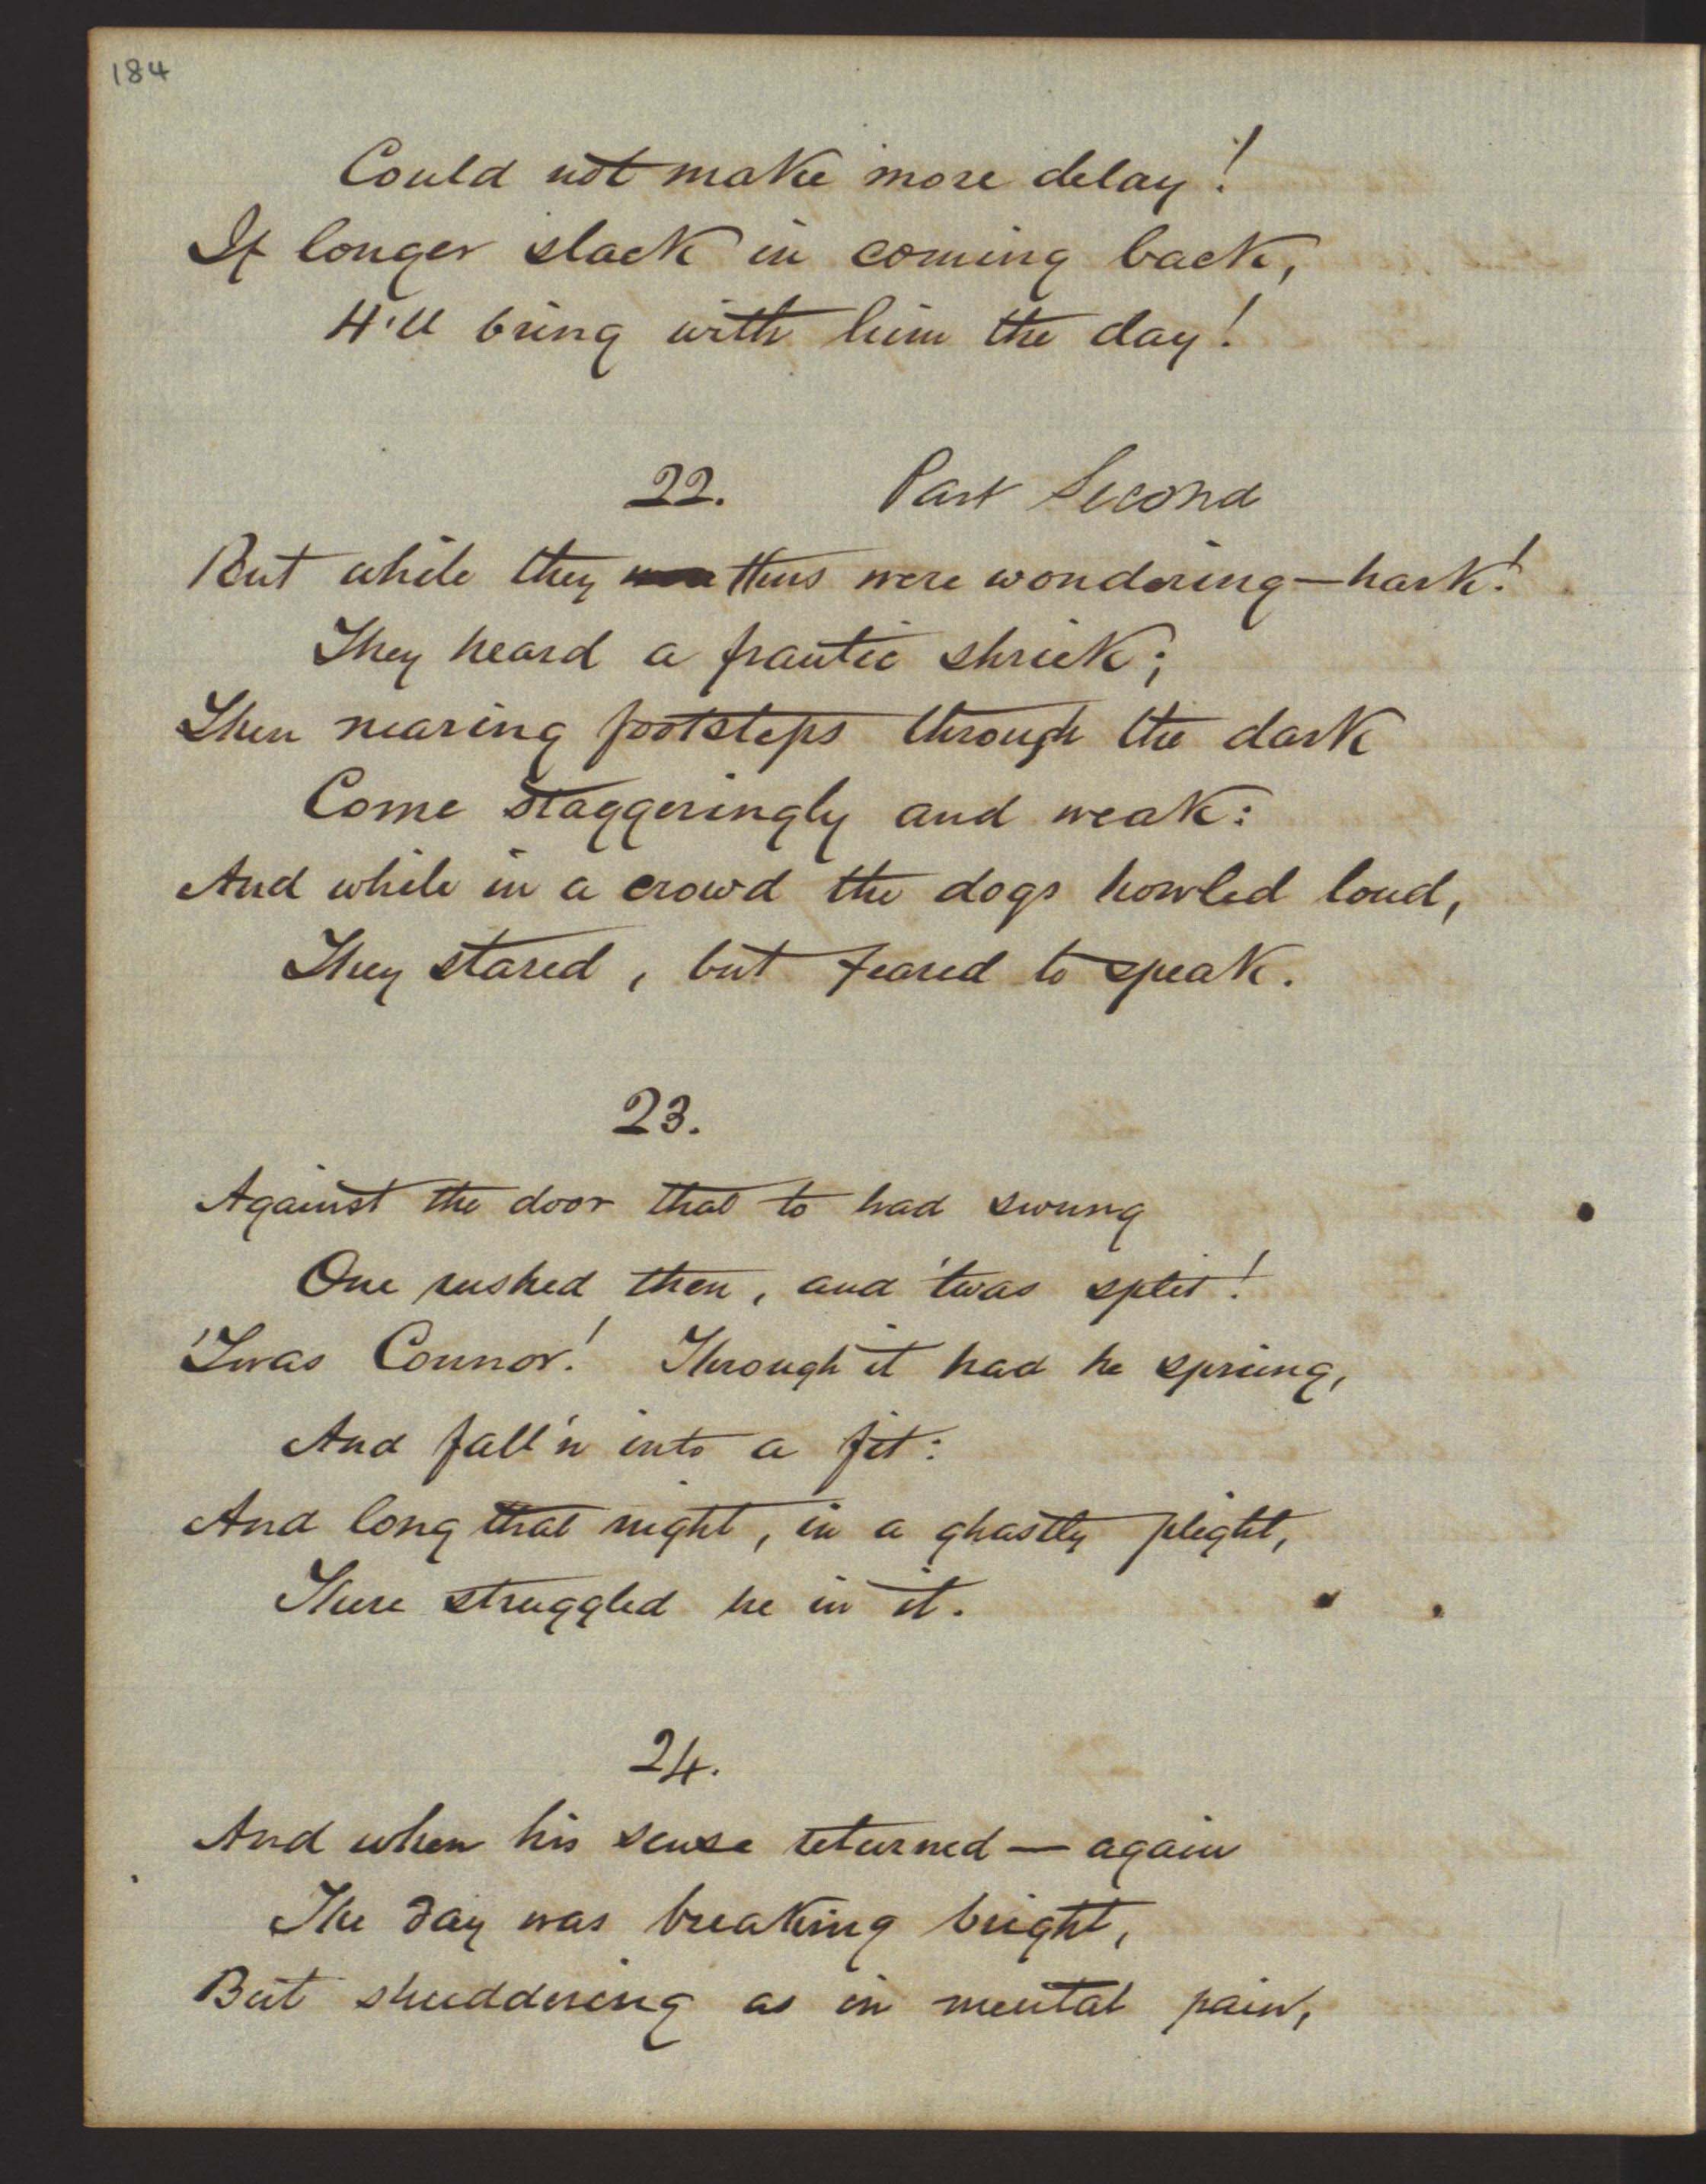 184
Could not make more delay!
If longer slack in coming back,
H'll bring with him the day!
22. Part Second
But while they thus were wondering—hark!
They heard a frantic shriek;
Then nearing footsteps through the dark
Come staggeringly and weak:
And while in a crowd the dogs howled loud,
They stared, but feared to speak.
23.
Against the door that to had swung
One rushed then, and 'twas split!
'Twas Connor! Through it had he sprung,
And fall'n into a fit:
And long that night, in a ghastly plight,
There struggled he in it.
24.
And when his sense returned — again
The day was breaking bright,
But shuddering as in mental pain,